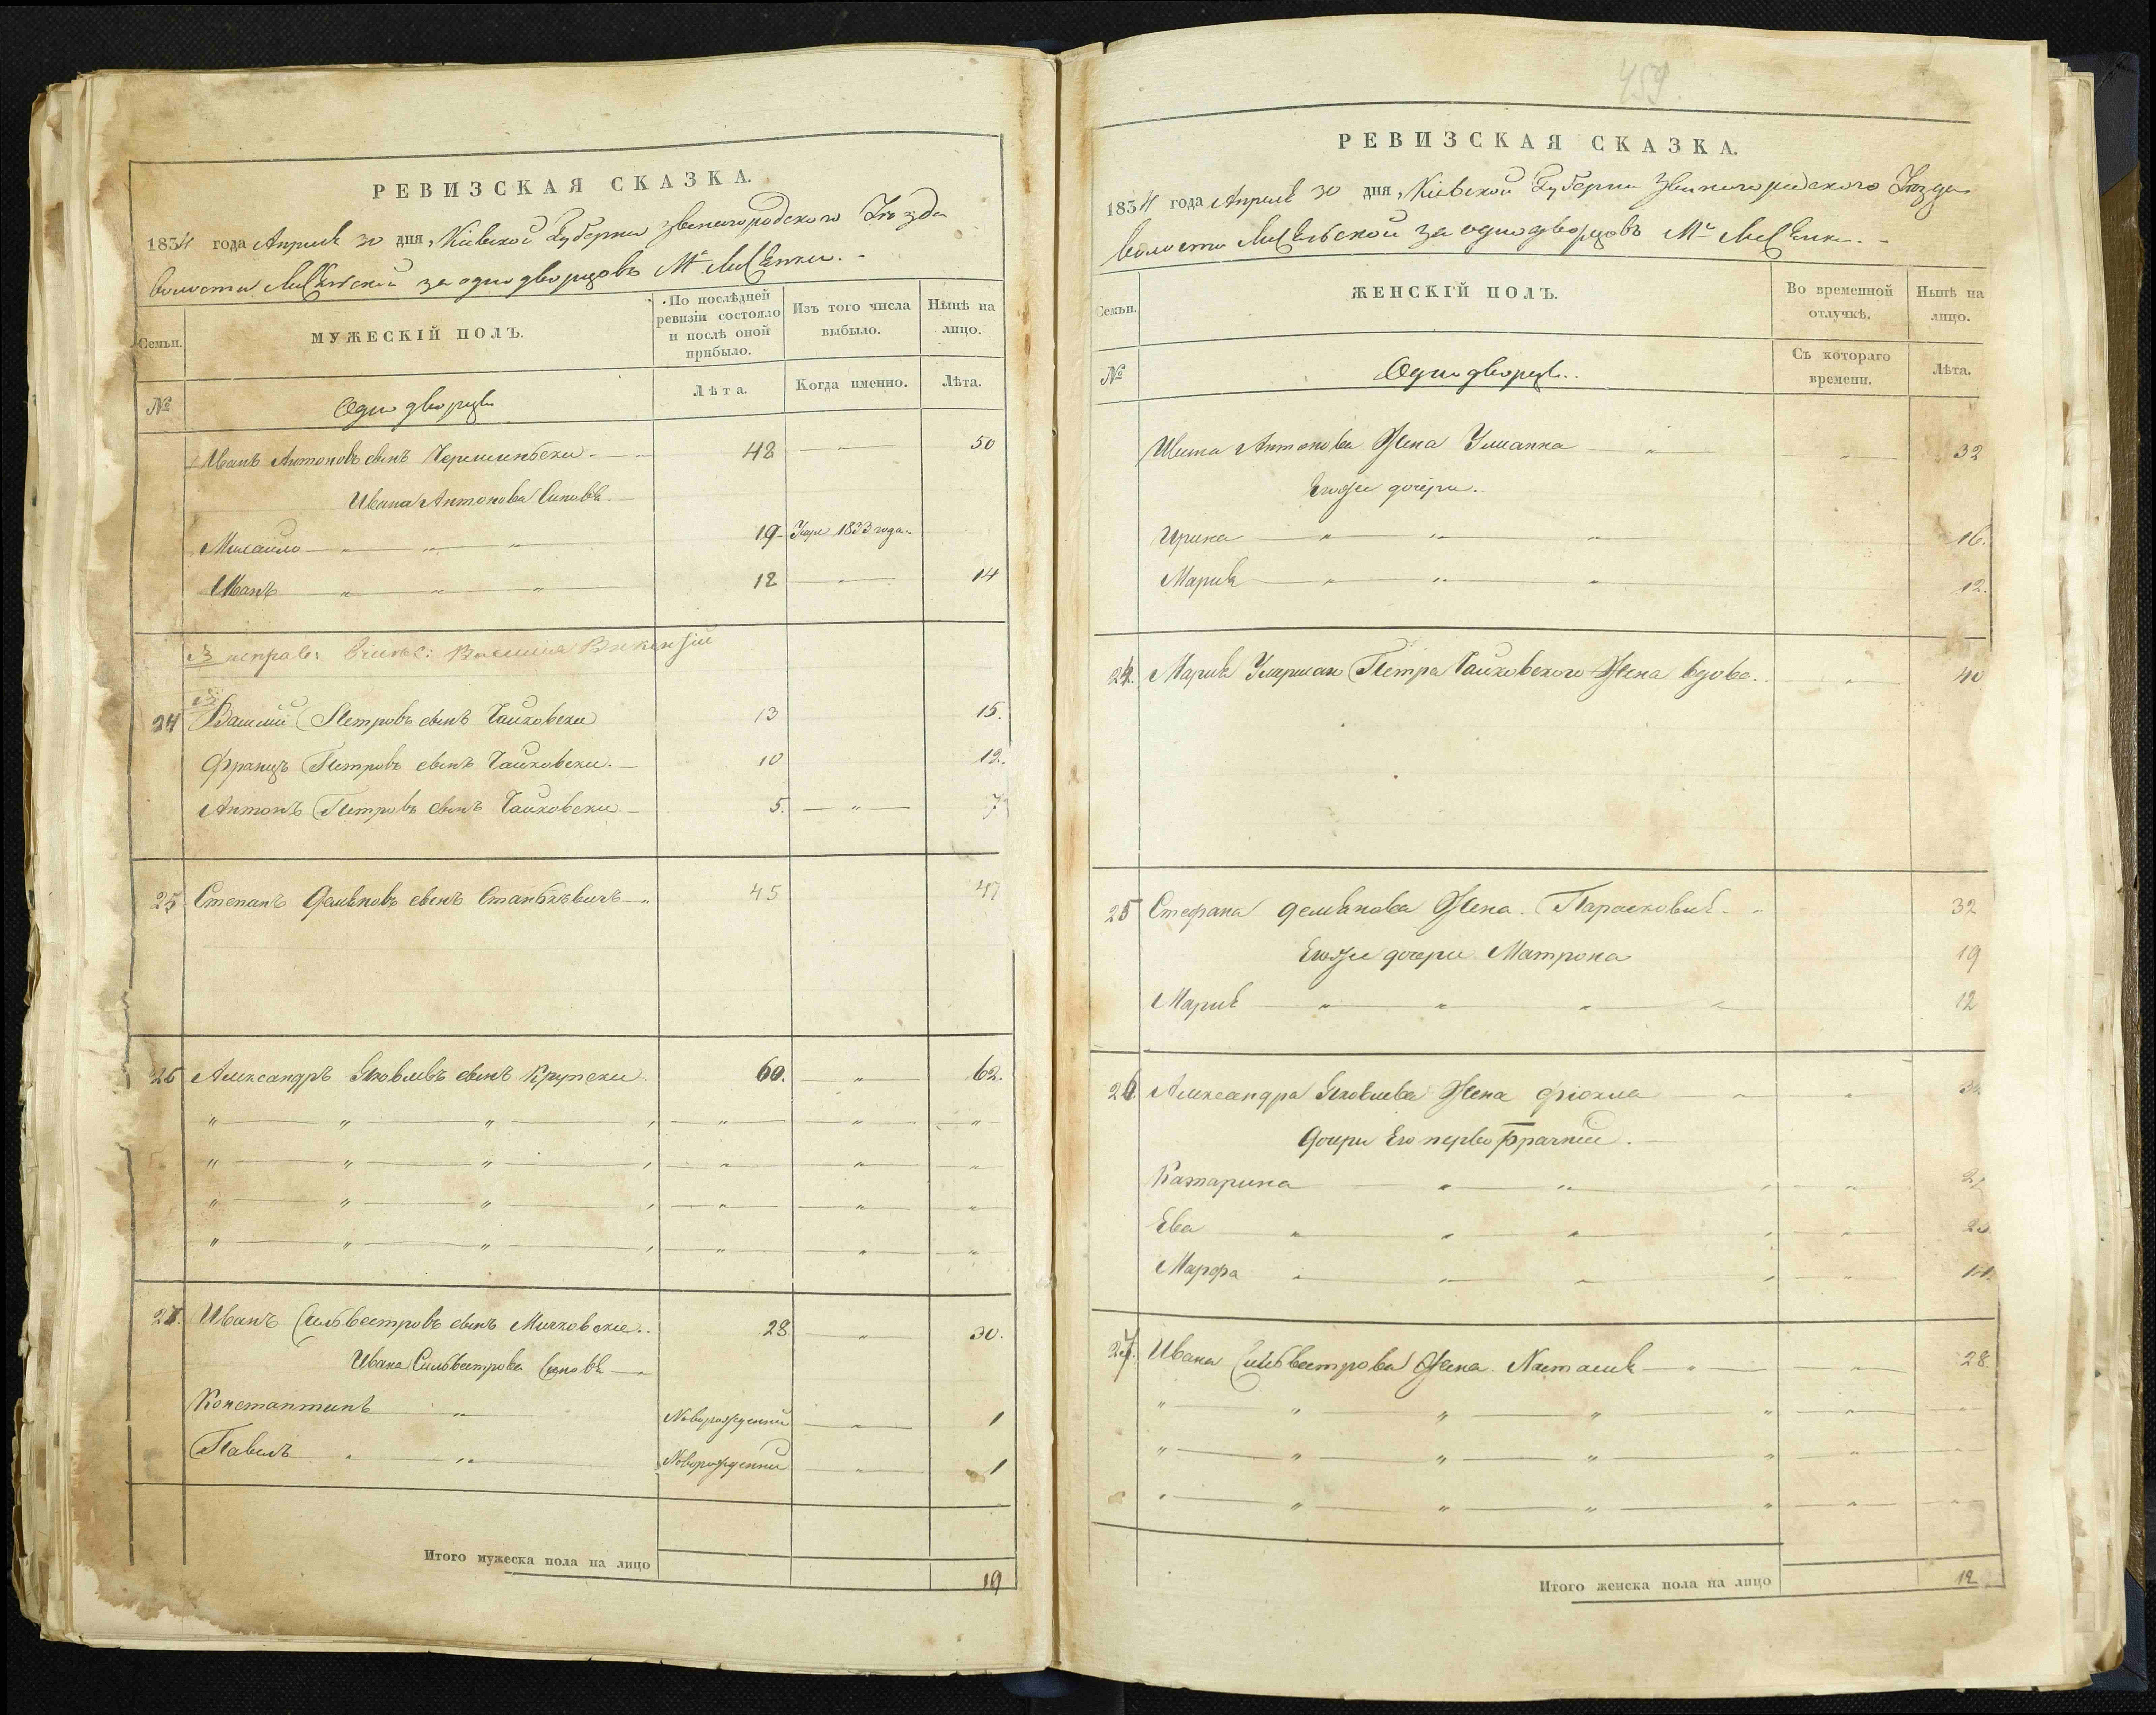 РЕВИЗСКАЯ СКАЗКА.
1834 года Апреля 30 дня, Кіевской Губерніи Звенигородского Уѣзда
волости Лисянской за однодворцовъ М. Лисянки.
Семьи.
МУЖЕСКІЙ ПОЛЪ.
По послѣдней ревизіи состояло и послѣ оной прибыло.
Изъ того числа выбыло.
Нынѣ на лицо.
№
Однодворцы
Лѣта.
Когда именно.
Лѣта.
Иванъ Антоновъ сынъ 48 — 50
Ивана Антонова Сыновья
Михайло — " — " — " 19 Умре 1833 года.
Иванъ " — " — " 12 — " — 14
исправ: Василія Викентій
24 Василій Петровъ сынъ Чайковски 13 15.
Францъ Петровъ сынъ Чайковски. — 10 12.
Антонъ Петровъ сынъ Чайковски — 5. — " — 7
25 Степанъ Демяновъ сынъ Станкевичъ — " 45 47
26 Александръ Яковлевъ сынъ Крупски. 60. — " — 62.
" — " — " — " — " — " — " —
" — " — " — " — " — " — " —
" — " — " — " — " — " — " —
" — " — " — " — " — " — " —
27. Иванъ Сильвестровъ сынъ Мичковские.. 28 — " — 30.
Ивана Сильвестрова Сыновья —
Константинъ " Новорожденний — " — 1
Павелъ " " Новорожденни — " — 1
Итого мужеска пола на лицо 19
459.
РЕВИЗСКАЯ СКАЗКА.
1834 года Апреля 30 дня, Кіевской Губерніи Звенигородского Уѣзда
волости Лисянской за однодворцовъ М. Лисянки. -
Семьи.
ЖЕНСКІЙ ПОЛЪ.
Во временной отлучкѣ.
Нынѣ на лицо.
№
Однодворцы..
Съ котораго времени.
Лѣта.
Ивана Антонова Жена Ульянна — " — " — 32
Егоже дочери.
Ирина — " — " — " 16.
Марія — " — " — " 12.
24. Марія Петра Чайковского Жена вдова. — " — 40
25 Стефана Демянова Жена. Парасковія - " 32
Егоже дочери Матрона 19
Марія — " — " — " — " 12
26. Александра Яковлева Жена Фіокла — " — " —
Дочери Его первобрачніи. —
Катарина — " — " — " — " —
Ева — " — " — " — " — " —
Марфа " — " — " — " — " —
27. Ивана Сильвестрова Жена. Настасія — " — — " — 28.
" — " — " — " — " — " — " —
" — " — " — " — " — " — " —
" — " — " — " — " — " — " —
Итого женска пола на лицо 12